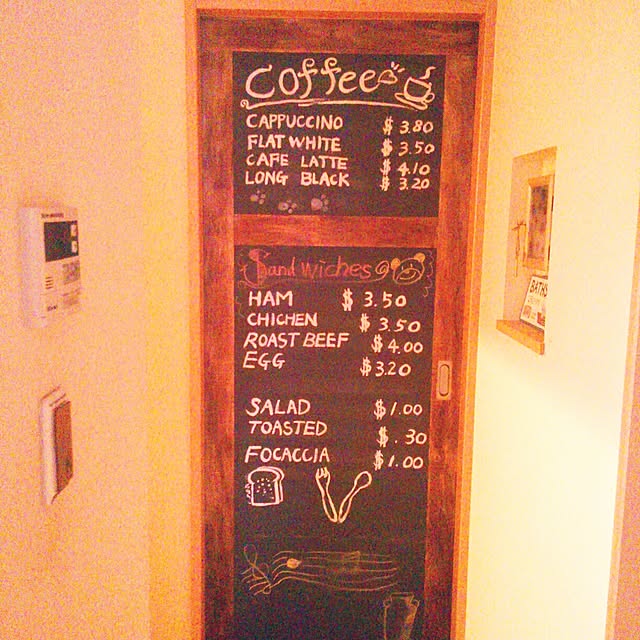 Coffee
CAPPUCCINO $3.80
FLAT WHITE $3.50
CAFE LATTE $4.10
LONG BLACK $3.20
Sandwiches
HAM $3.50
CHICHEN $3.50
ROAST BEEF $4.00
EGG $3.20
SALAD $1.00
TOASTED $.30
FOCACCIA $1.00
BATHS